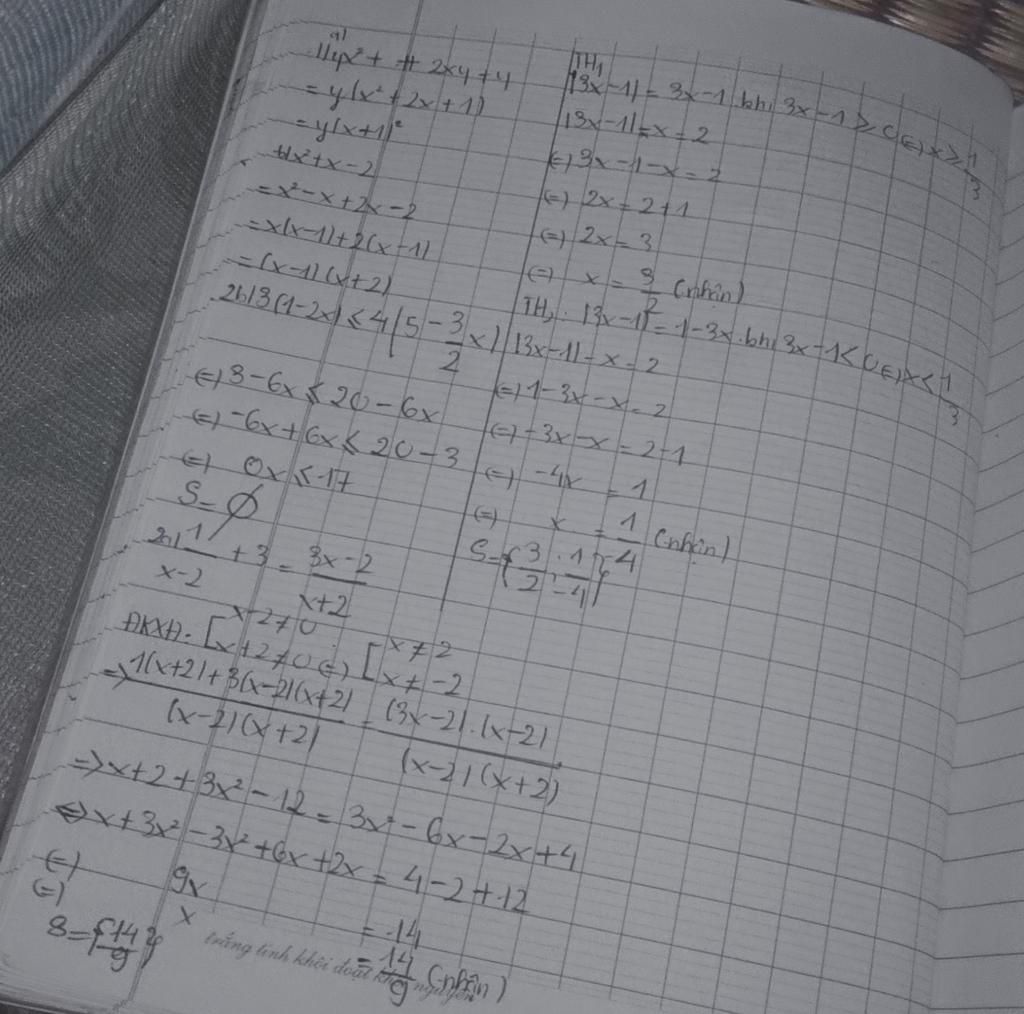 a)
1) yx² + 2xy + y
= y(x² + 2x + 1)
= y(x+1)²
+) x² + x - 2
= x² - x + 2x - 2
= x(x-1) + 2(x-1)
= (x-1)(x+2)
2b) 3(1-2x) ≤ 4(5 - 3/2 x)
(=) 3 - 6x ≤ 20 - 6x
(=) -6x + 6x ≤ 20 - 3
(=) 0x ≤ 17
S = ∅
2a) 1/(x-2) + 3 = (3x-2)/(x+2)
ĐKXĐ: [x-2 ≠ 0 (=) [x ≠ 2
[x+2 ≠ 0 [x ≠ -2
=> (1(x+2) + 3(x-2)(x+2))/((x-2)(x+2)) = ((3x-2).(x-2))/((x-2)(x+2))
=> x + 2 + 3x² - 12 = 3x² - 6x - 2x + 4
<=> x + 3x² - 3x² + 6x + 2x = 4 - 2 + 12
(=) 9x = 14
(=) x = 14/9 (nhận)
S = {14/9}
TH₁
|3x-1| = 3x-1 khi 3x-1 ≥ 0 (=) x ≥ 1/3
|3x-1| - x = 2
(=) 3x - 1 - x = 2
(=) 2x = 2 + 1
(=) 2x = 3
(=) x = 3/2 (nhận)
TH₂: |3x-1| = 1-3x khi 3x-1 < 0 (=) x < 1/3
|3x-1| - x = 2
(=) 1 - 3x - x = 2
(=) -3x - x = 2-1
(=) -4x = 1
(=) x = 1/-4 (nhận)
S = {3/2; 1/-4}
trắng tinh khôi đoạt khôi nguyên